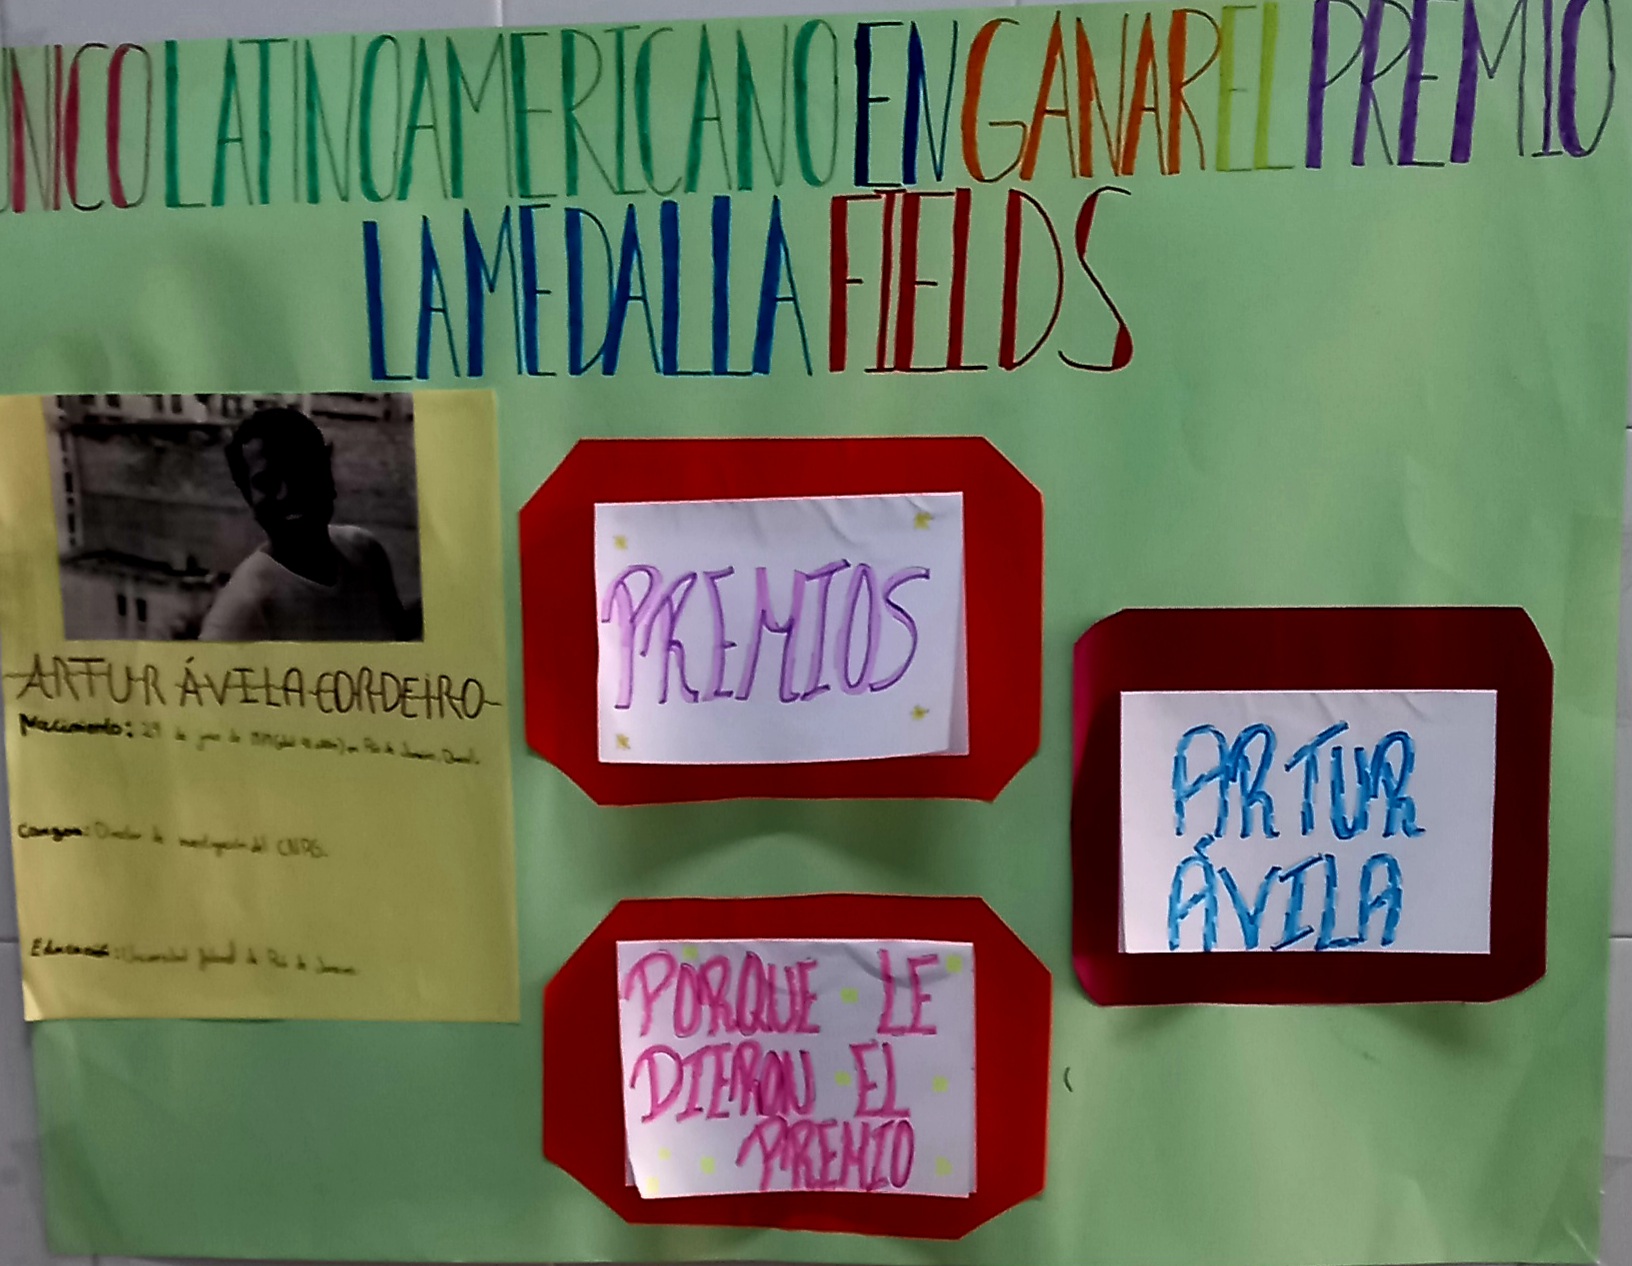 ÚNICO LATINOAMERICANO EN GANAR EL PREMIO
LA MEDALLA FIELDS
ARTUR ÁVILA CORDEIRO
Nacimiento: 29 de de en Río de Janeiro, Brasil.
Cargos: Director de investigación del CNRS.
Educación: Universidad federal de Río de Janeiro
PREMIOS
ARTUR
ÁVILA
PORQUE LE
DIERON EL
PREMIO